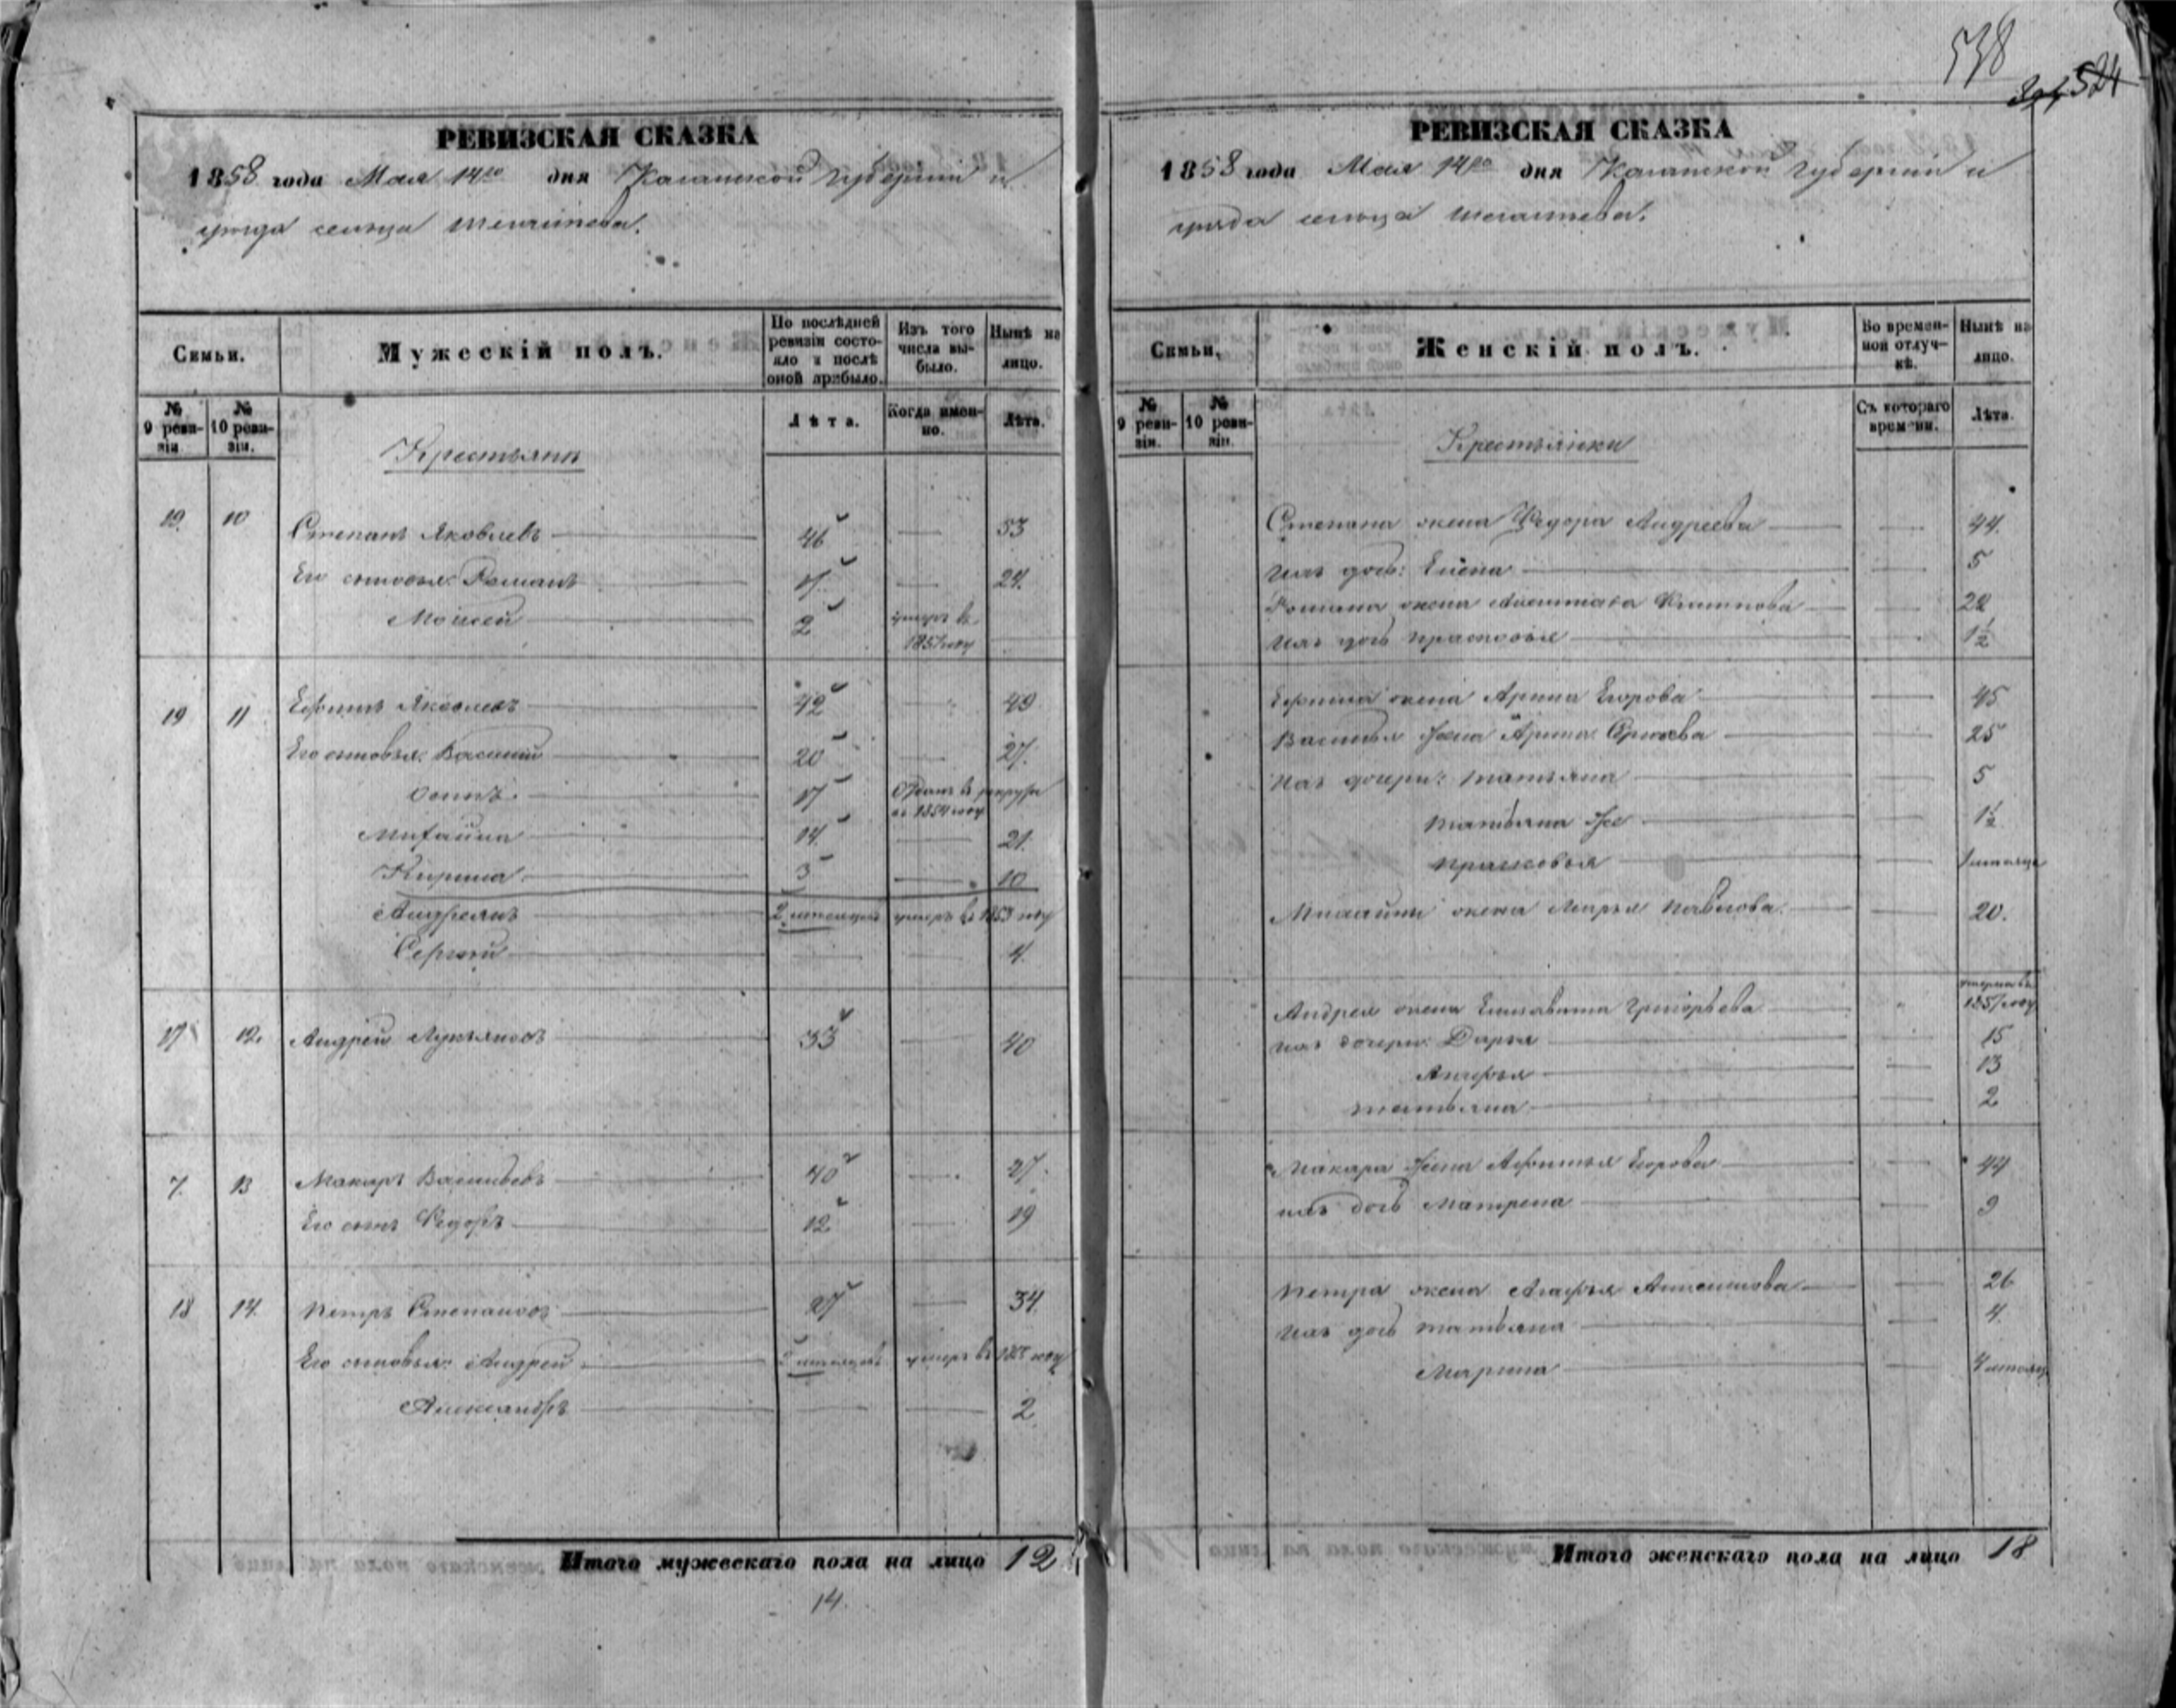 538
524
РЕВИЗСКАЯ СКАЗКА
1858 года Мая 14го дня Казанской Губерніи и
уѣзда сельца
Семьи.
Мужескій полъ.
По послѣдней ревизіи состояло и послѣ оной прибыло.
Изъ того числа выбыло.
Нынѣ на лицо.
№ 9 ревизіи.
№ 10 ревизіи.
Лѣта.
Когда именно.
Лѣта.
Крестьяне
19. 10 Степанъ Яковлевъ 46 53
Его сыновья: Романъ 17 24.
Моисей 2 умеръ въ 1851 году
19 11 Ефимъ Яковлевъ 42 49
Его сыновья: Василий 20 27.
Осипъ 17 Отданъ въ рекруты въ 1854 году
Михайла 14 21.
Кирила 3 10
Андреянъ 2 месяцев умеръ въ 1853 году
Сергей 4.
17 12. Андрей Лукьяновъ 33 40
7. 13 Макаръ Васильевъ 40 27.
Его сынъ Федоръ 12 19
18 14. Петръ Степановъ 27 34.
Его сыновья: Андрей умеръ въ году
Александръ 2.
Итого мужескаго пола на лицо 12
14.
РЕВИЗСКАЯ СКАЗКА
1858 года Мая 14го дня Казанской Губерніи и
уѣзда сельца
Семьи.
Женскій полъ.
Во временной отлучкѣ.
Нынѣ на лицо.
№ 9 ревизіи.
№ 10 ревизіи.
Съ котораго времени.
Лѣта.
Крестьянки
Степана жена Федора Андреева 44.
ихъ дочь: Елена 5
Романа жена 22
ихъ дочь Прасковья 1½
Ефима жена Арина Егорова 45
Василья жена Арина 25
ихъ дочери: Татьяна 5
Татьяна же 1½
Прасковья 1 месяца
Михайлы жена Марья Павлова 20.
Андрея жена Елисавета Григорьева умерла въ 1857 году
ихъ дочери: Дарья 15
Агафья 13
Татьяна 2
Макара жена Афимья Егорова 44
ихъ дочь Матрена 9
Петра жена Агафья 26
ихъ дочь Татьяна 4.
Марина 4 месяца
Итого женскаго пола на лицо 18